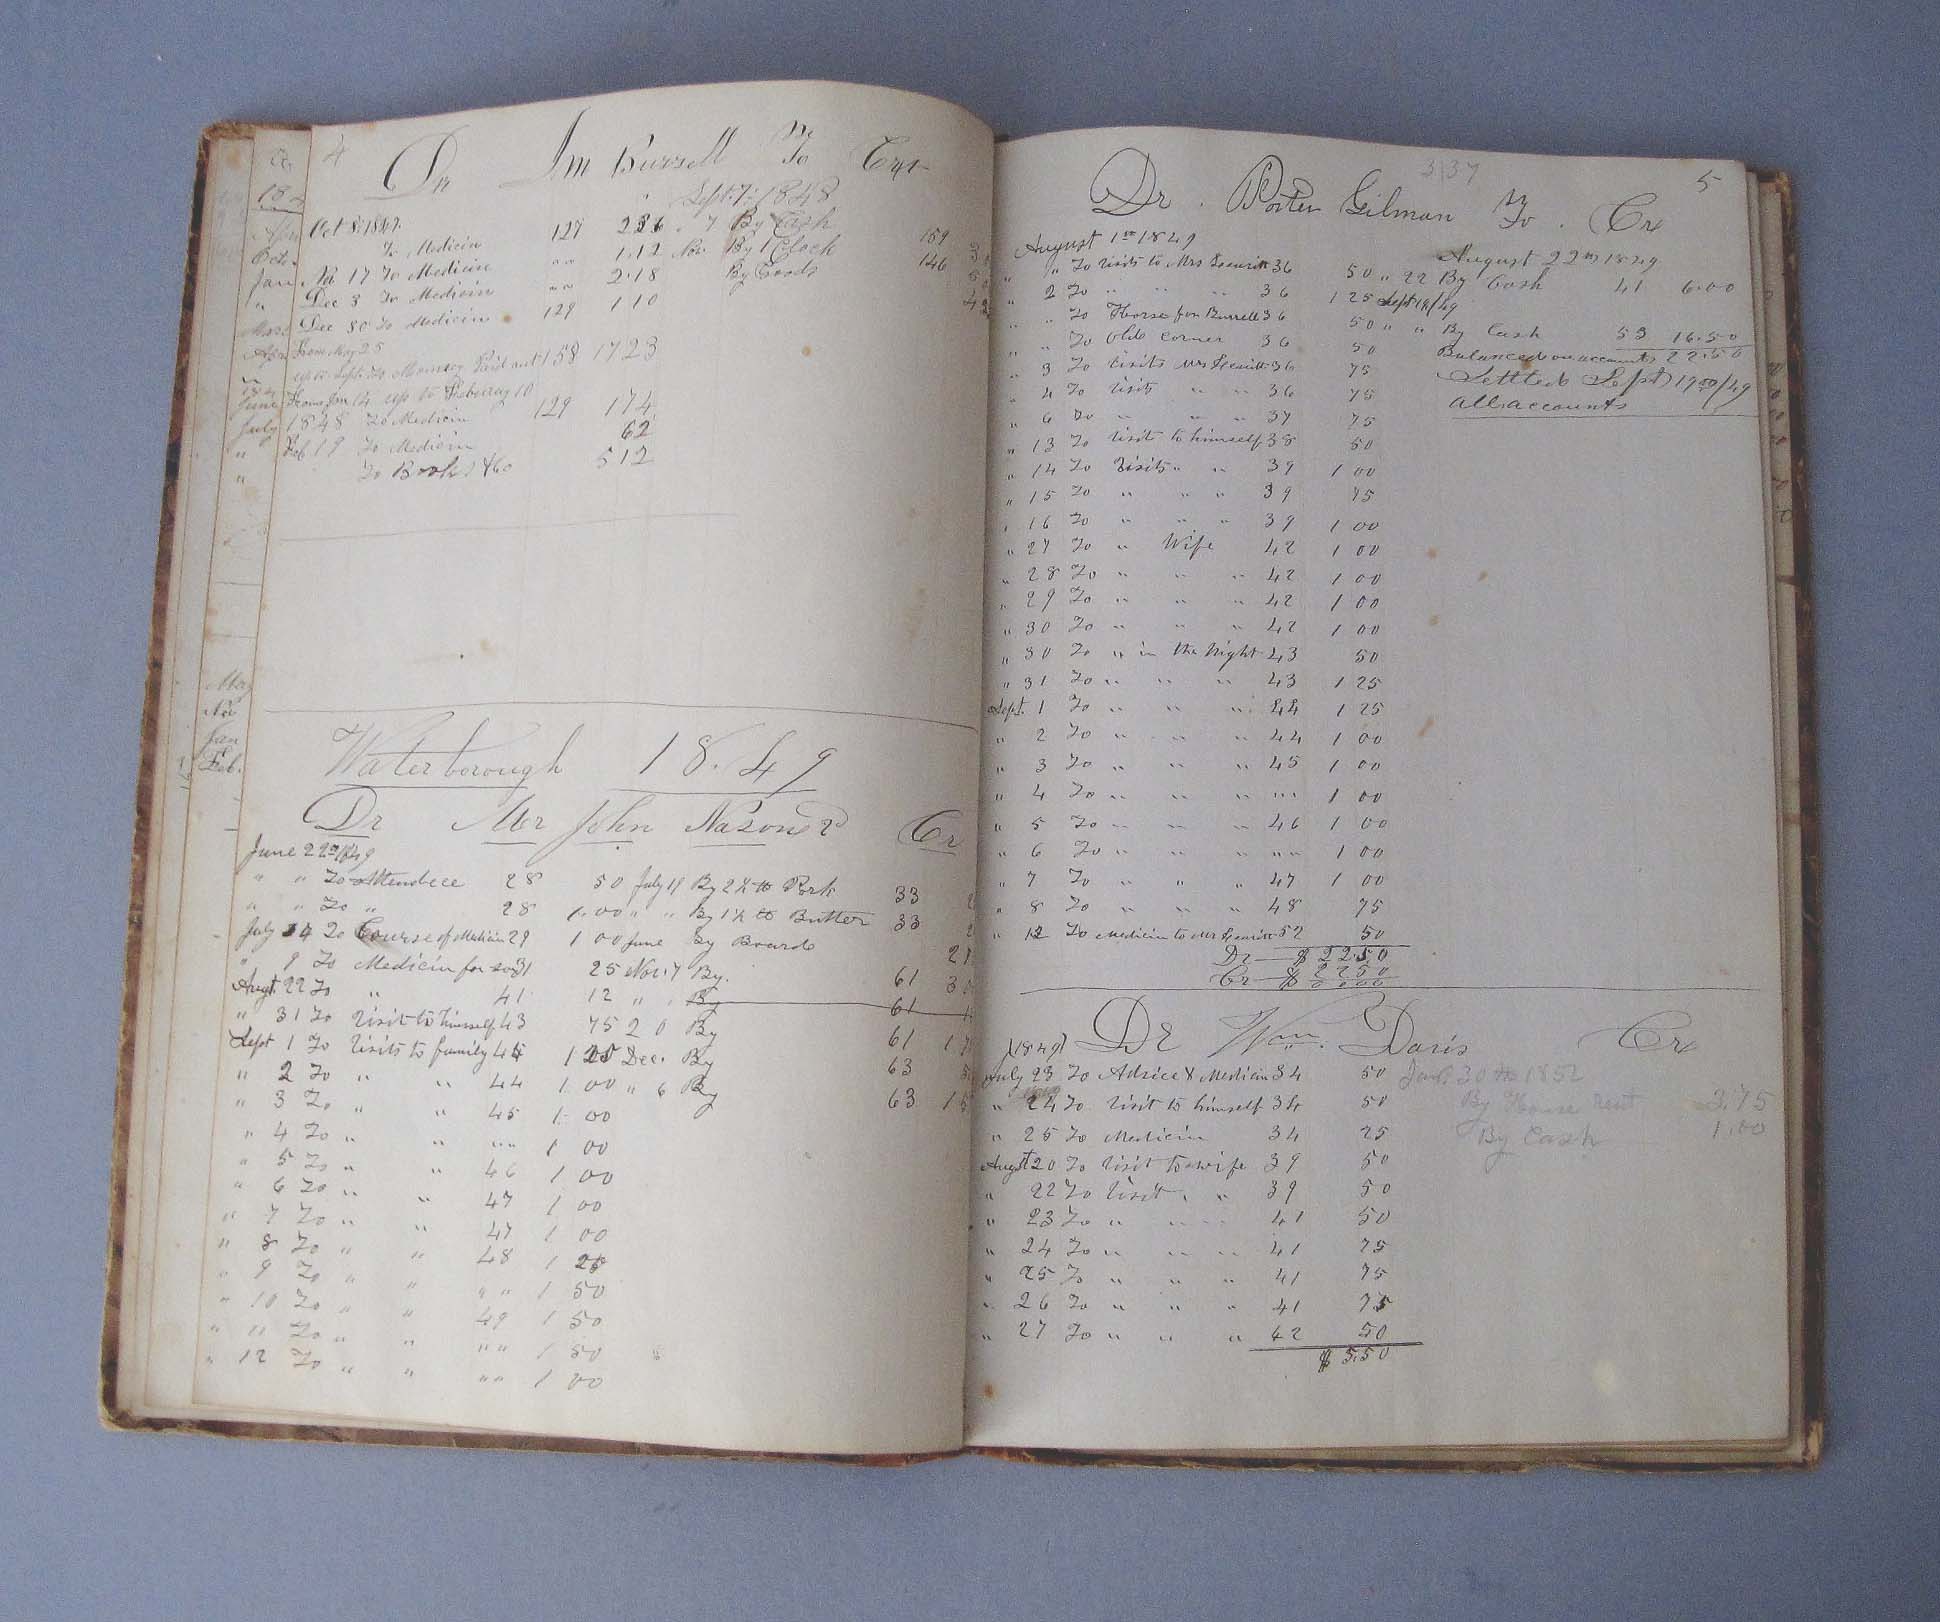 4
Dr Jm Burrell To Cr
Sept. 7. 1848
Oct 8. 1847.
To Medicin 127 2.26 " 7 By Cash 159
No 17 To Medicin " " 1.12 Nov By 1 Clock 146
Dec 3 To Medicin " " 2.18 By Goods
Dec 30 To Medicin 129 1 10
From May 25
up to Sept. Paid out 158 17 23
From Jan 14 up to 10
1848 To Medicin 129 1 74
Feb 19 To Medicin 62
To Books &c 5 12
Waterborough 1849
Dr Mr John Nason 2d Cr
June 22nd 1849
" " To Attendece 28 50 July 19 By 2 ½ lb Pork 33
" " To " 28 1.00 " " By 1 ½ lb Butter 33
July 4 To Course of Medicin 29 1 00 June By Board
" 9 To Medicin for 31 25 Nov. 7 By 61
Augt. 22 To " 41 12 " " By 61
" 31 To Visit to himself 43 75 20 By 61
Sept 1 To Visits to family 44 1 25 Dec. By 63
" 2 To " " 44 1 00 " 6 By 63
" 3 To " " 45 1 00
" 4 To " " " " 1 00
" 5 To " " 46 1 00
" 6 To " " 47 1 00
" 7 To " " 47 1 00
" 8 To " " 48 1 25
" 9 To " " " " 1 50
" 10 To " " 49 1 50
" 11 To " " " " 1 50
" 12 To " " " " 1 00
5
Dr. Porter Gilman To Cr
August 1st 1849 August 22nd 1849
" " To Visits to Mrs Leavitt 36 50 " 22 By Cash 41 6.00
" 2 To " " " 36 1 25 Sept 19/49
" " To Horse for Burrell 36 50 " " By Cash 53 16.50
" " To old corner 36 50 Balanced on accounts 22.50
" 3 To Visits Mrs Leavitt 36 75 Settled Sept 19th/49
" 4 To Visits " " 36 75 all accounts
" 6 To " " " 37 75
" 13 To Visit to himself 38 50
" 14 To Visits " " 39 1 00
" 15 To " " " 39 75
" 16 To " " " 39 1 00
" 27 To " Wife 42 1 00
" 28 To " " " 42 1 00
" 29 To " " " 42 1 00
" 30 To " " " 42 1 00
" 30 To " in the Night 43 50
" 31 To " " " 43 1 25
Sept. 1 To " " " 44 1 25
" 2 To " " " 44 1 00
" 3 To " " " 45 1 00
" 4 To " " " " " 1 00
" 5 To " " " 46 1 00
" 6 To " " " " " 1 00
" 7 To " " " 47 1 00
" 8 To " " " 48 75
" 12 To Medicin to Mrs Leavitt 52 50
Dr $22.50
Cr $22.50
0000
(1849) Dr Wm. Davis Cr
July 23 To Advice & Medicin 34 50 Jan. 30 1852
" 24 To Visit to himself 34 50 By House rent 3.75
" 25 To Medicin 34 25 By Cash 1.00
August 20 To Visit to wife 39 50
" 22 To Visit " " 39 50
" 23 To " " " 41 50
" 24 To " " " 41 75
" 25 To " " " 41 75
" 26 To " " " 41 75
" 27 To " " " 42 50
$5.50